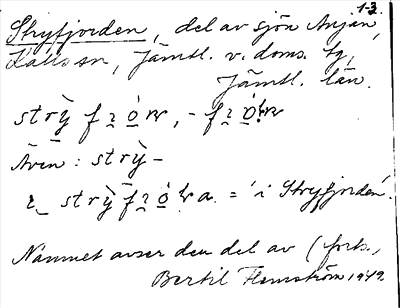 1-3.
Stryfjorden, del av sjön Anjan,
Kalls sn, Jämtl. v. doms. tg,
Jämtl. län.
strỳ
Även: strỳ-
= 'i Stryfjorden'.
Namnet avser den del av (forts.,
Bertil Flemström 1942